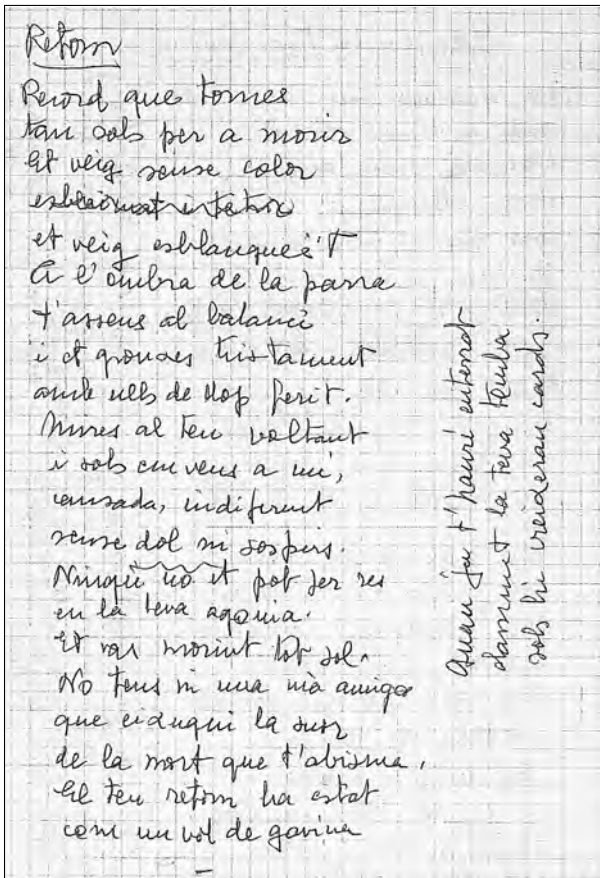 Retorn
Record que tornes
tan sols per a morir
et veig sense color
et veig esblanqueït
A l'ombra de la parra
t'asseus al balancí
i et gronxes tristament
amb ulls de llop ferit.
Mires al teu voltant
i sols em veus a mi,
cansada, indiferent
sense dol ni sospirs.
Ningú no et pot fer res
en la teva agonia.
Et vas morint tot sol.
No tens ni una mà amiga
que eixugui la suor
de la mort que t'abisma.
El teu retorn ha estat
com un vol de gavina
Quan jo t'hauré enterrat
damunt la teva tomba
sols hi creixeran cards.